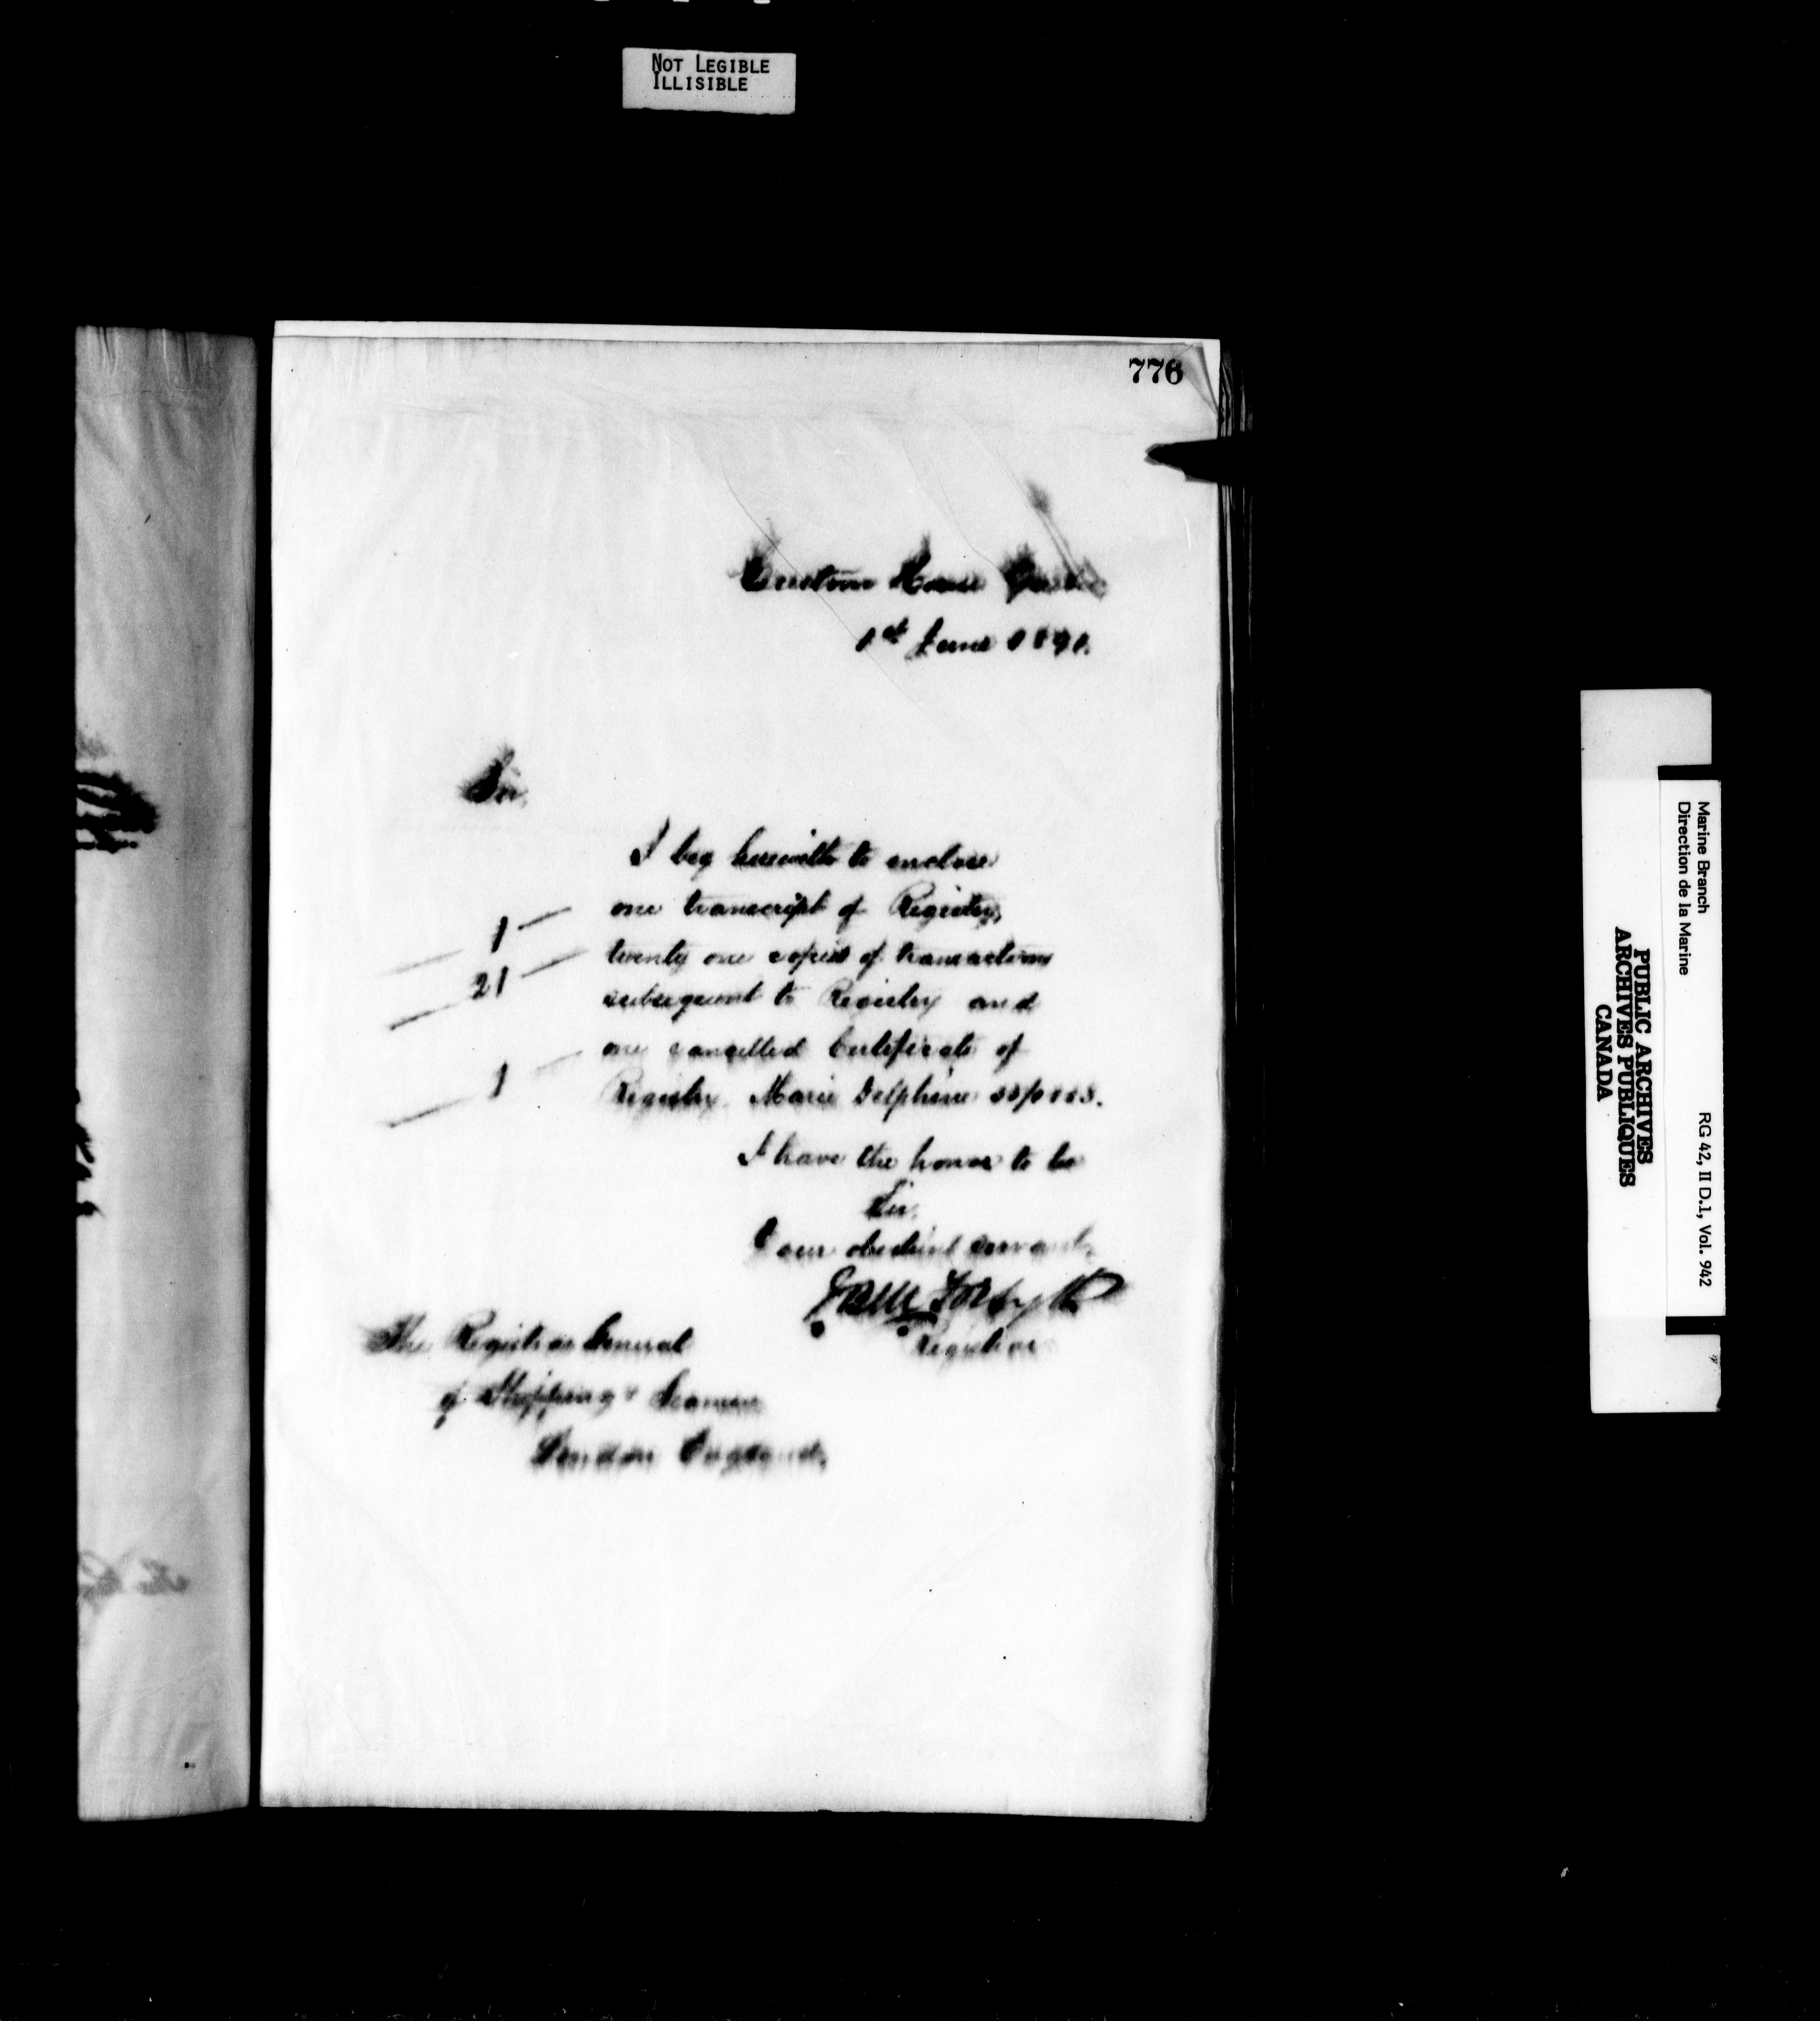 NOT LEGIBLE
ILLISIBLE
776
Custom House Quebec
1st June 1891.
Sir,
I beg herewith to enclose
1 one transcript of Registry,
21 twenty one copies of transactions
subsequent to Registry and
1 one cancelled Certificate of
Registry Marie Delphine
I have the honor to be
Sir,
Your obedient servant,
Forsyth
Registrar
The Registrar General
of Shipping & Seamen
London England,
Marine Branch
Direction de la Marine
RG 42, II D.1, Vol. 942
PUBLIC ARCHIVES
ARCHIVES PUBLIQUES
CANADA